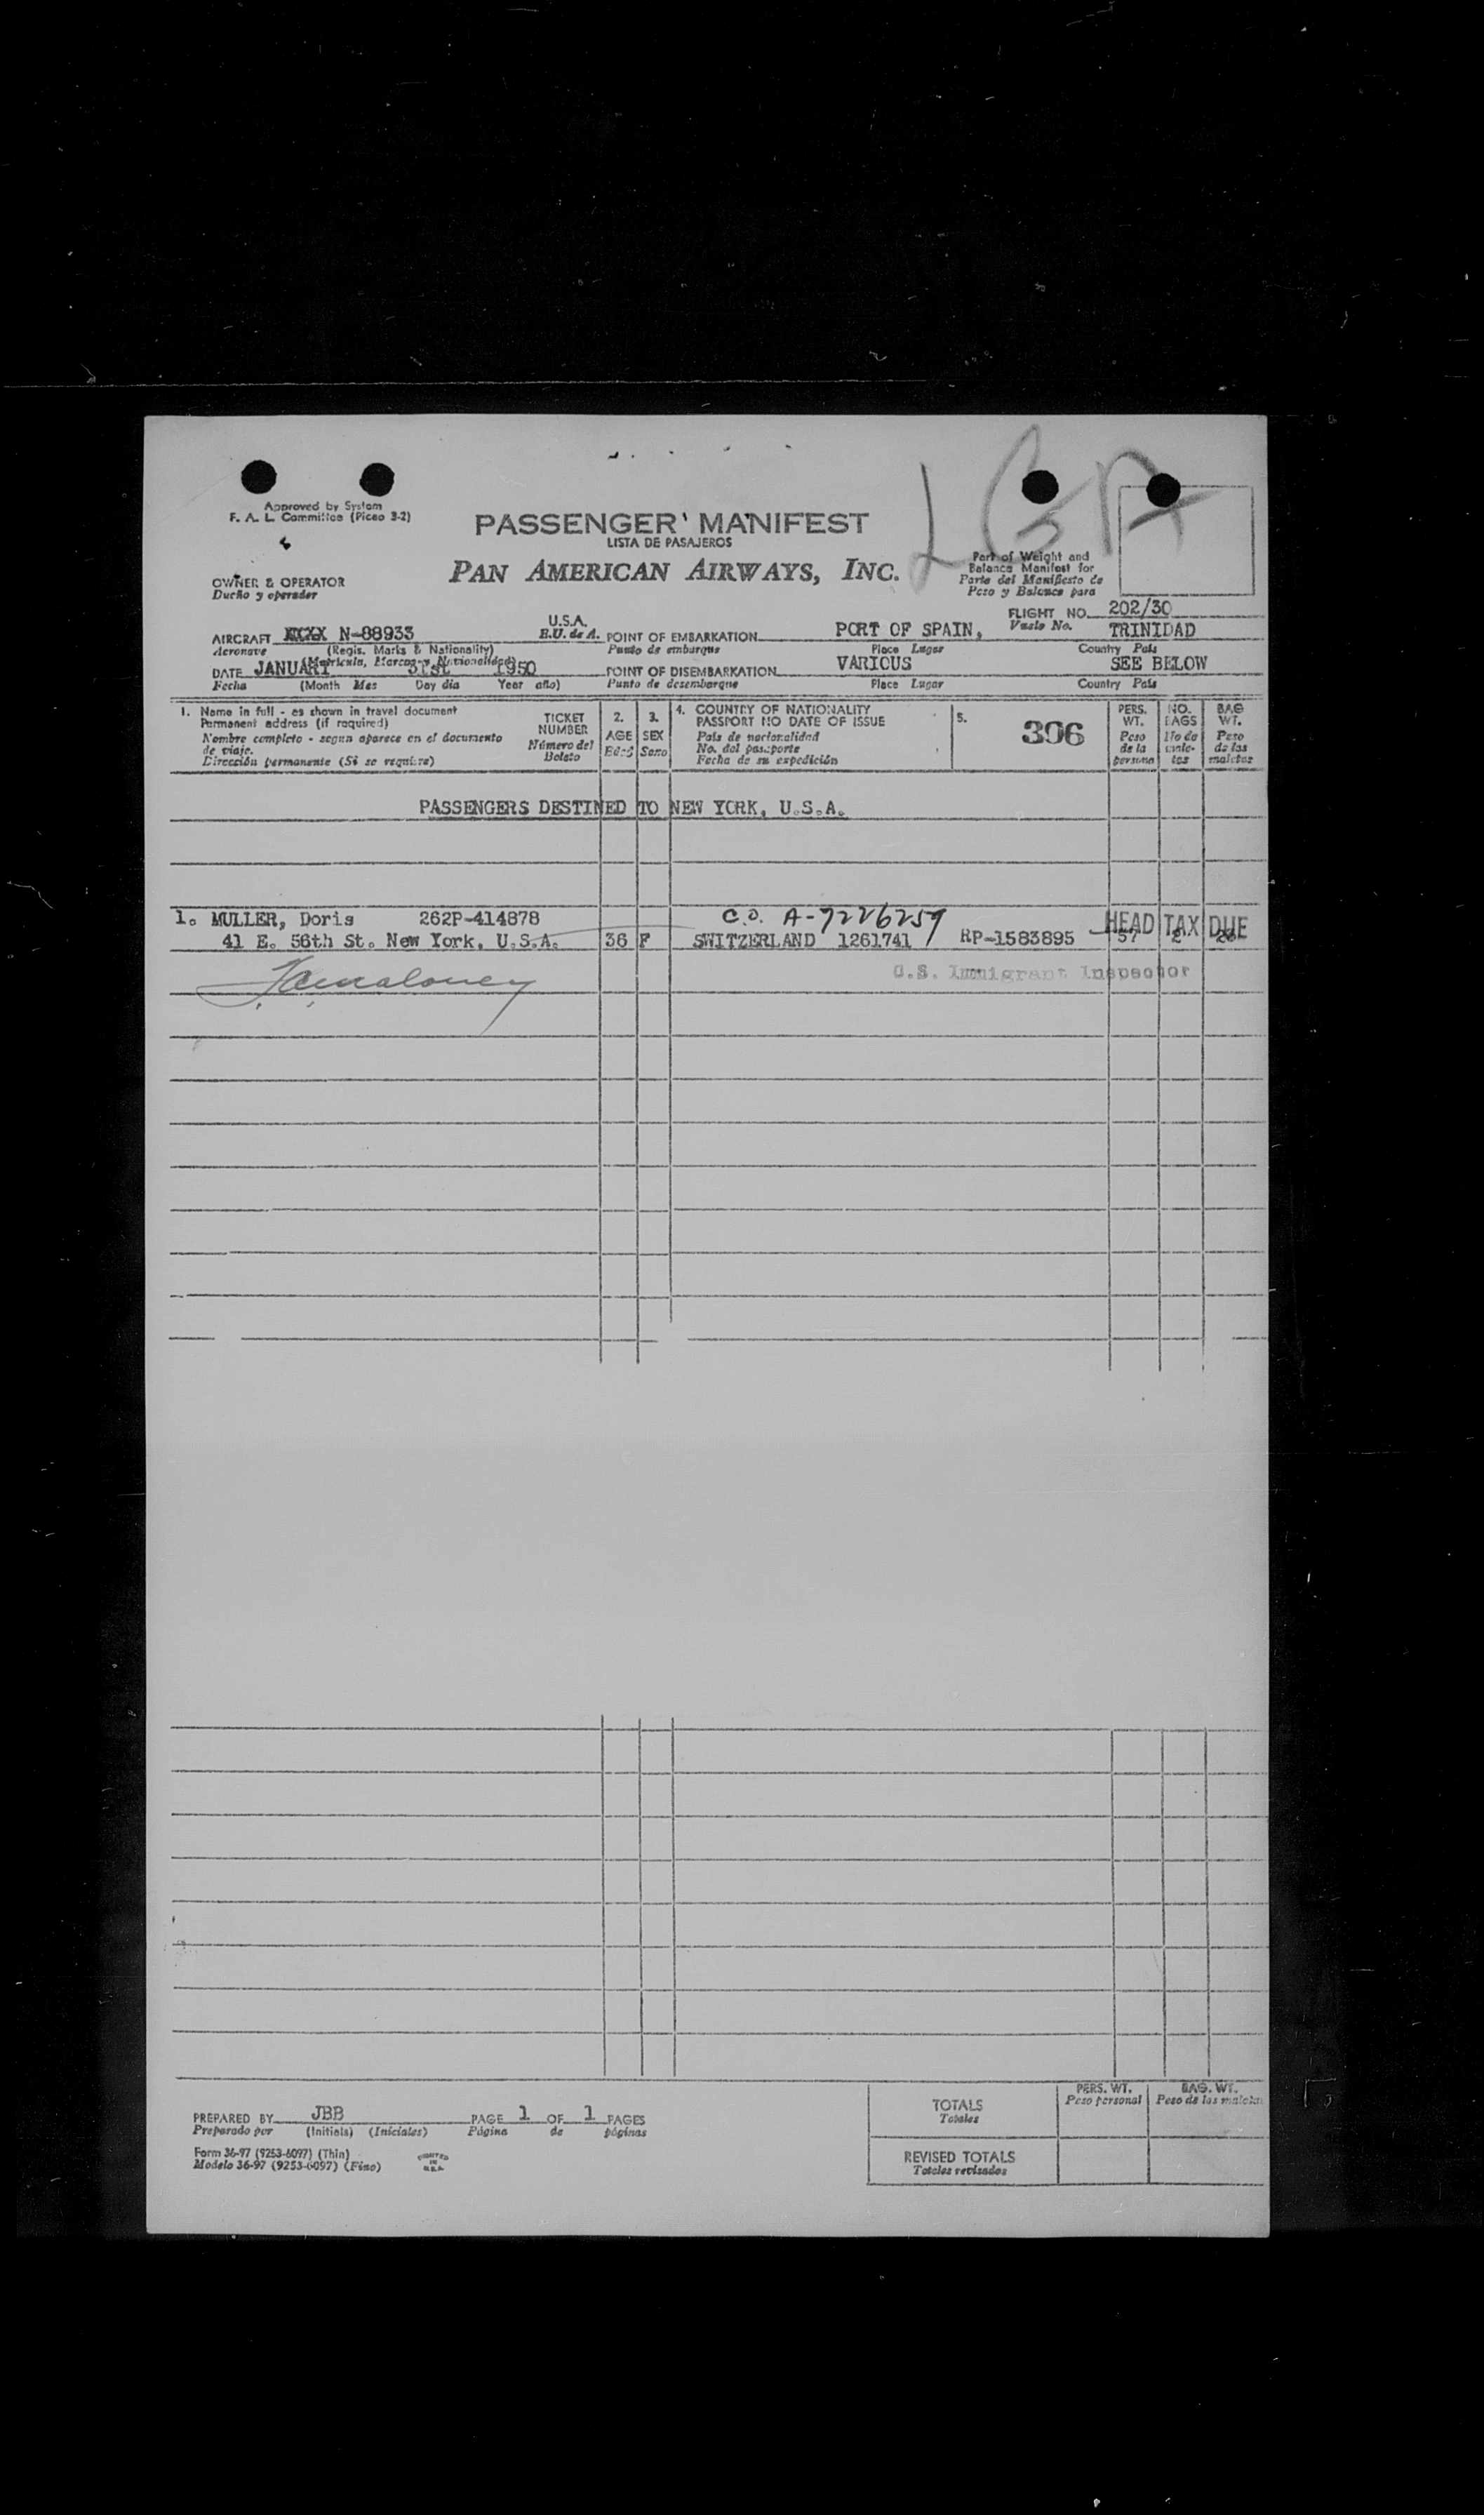 LGA
Approved by System
F. A. L. Committee (Picao 3-2)
PASSENGER MANIFEST
LISTA DE PASAJEROS
PAN AMERICAN AIRWAYS, INC.
Part of Weight and
Balance Manifest for
Parte del Manifiesto de
Peso y Balance para
OWNER & OPERATOR
Dueño y operador
FLIGHT NO. 202/30
Vuelo No.
AIRCRAFT XXXX N-88933 U.S.A. E.U. de A. POINT OF EMBARKATION PORT OF SPAIN, TRINIDAD
Aeronave (Regis. Marks & Nationality) Punto de embarque Place Lugar Country País
(Matrícula, Marcas y Nacionalidad)
DATE JANUARY 31st 1950 POINT OF DISEMBARKATION VARIOUS SEE BELOW
Fecha (Month Mes Day día Year año) Punto de desembarque Place Lugar Country País
1. Name in full - as shown in travel document
Permanent address (if required)
Nombre completo - segun aparece en el documento
de viaje.
Dirección permanente (Si se requiere)
TICKET
NUMBER
Número del
Boleto
2.
AGE
Edad
3.
SEX
Sexo
4. COUNTRY OF NATIONALITY
PASSPORT NO DATE OF ISSUE
País de nacionalidad
No. del pasaporte
Fecha de su expedición
5.
306
PERS.
WT.
Peso
de la
persona
NO.
BAGS
No de
male-
tas
BAG
WT.
Peso
de las
maletas
PASSENGERS DESTINED TO NEW YORK, U.S.A.
1. MULLER, Doris 262P-414878 C.O. A-7226259 HEAD TAX DUE
41 E. 56th St. New York, U.S.A. 36 F SWITZERLAND 1261741 RP-1583895 57 2 26
U.S. Immigrant Inspector
PREPARED BY JBB PAGE 1 OF 1 PAGES
Preparado por (Initials) (Iniciales) Página de páginas
Form 36-97 (9253-6097) (Thin)
Modelo 36-97 (9253-6097) (Fino)
PRINTED
IN
U.S.A.
PERS. WT.
Peso personal
BAG. WT.
Peso de las maletas
TOTALS
Totales
REVISED TOTALS
Totales revisados